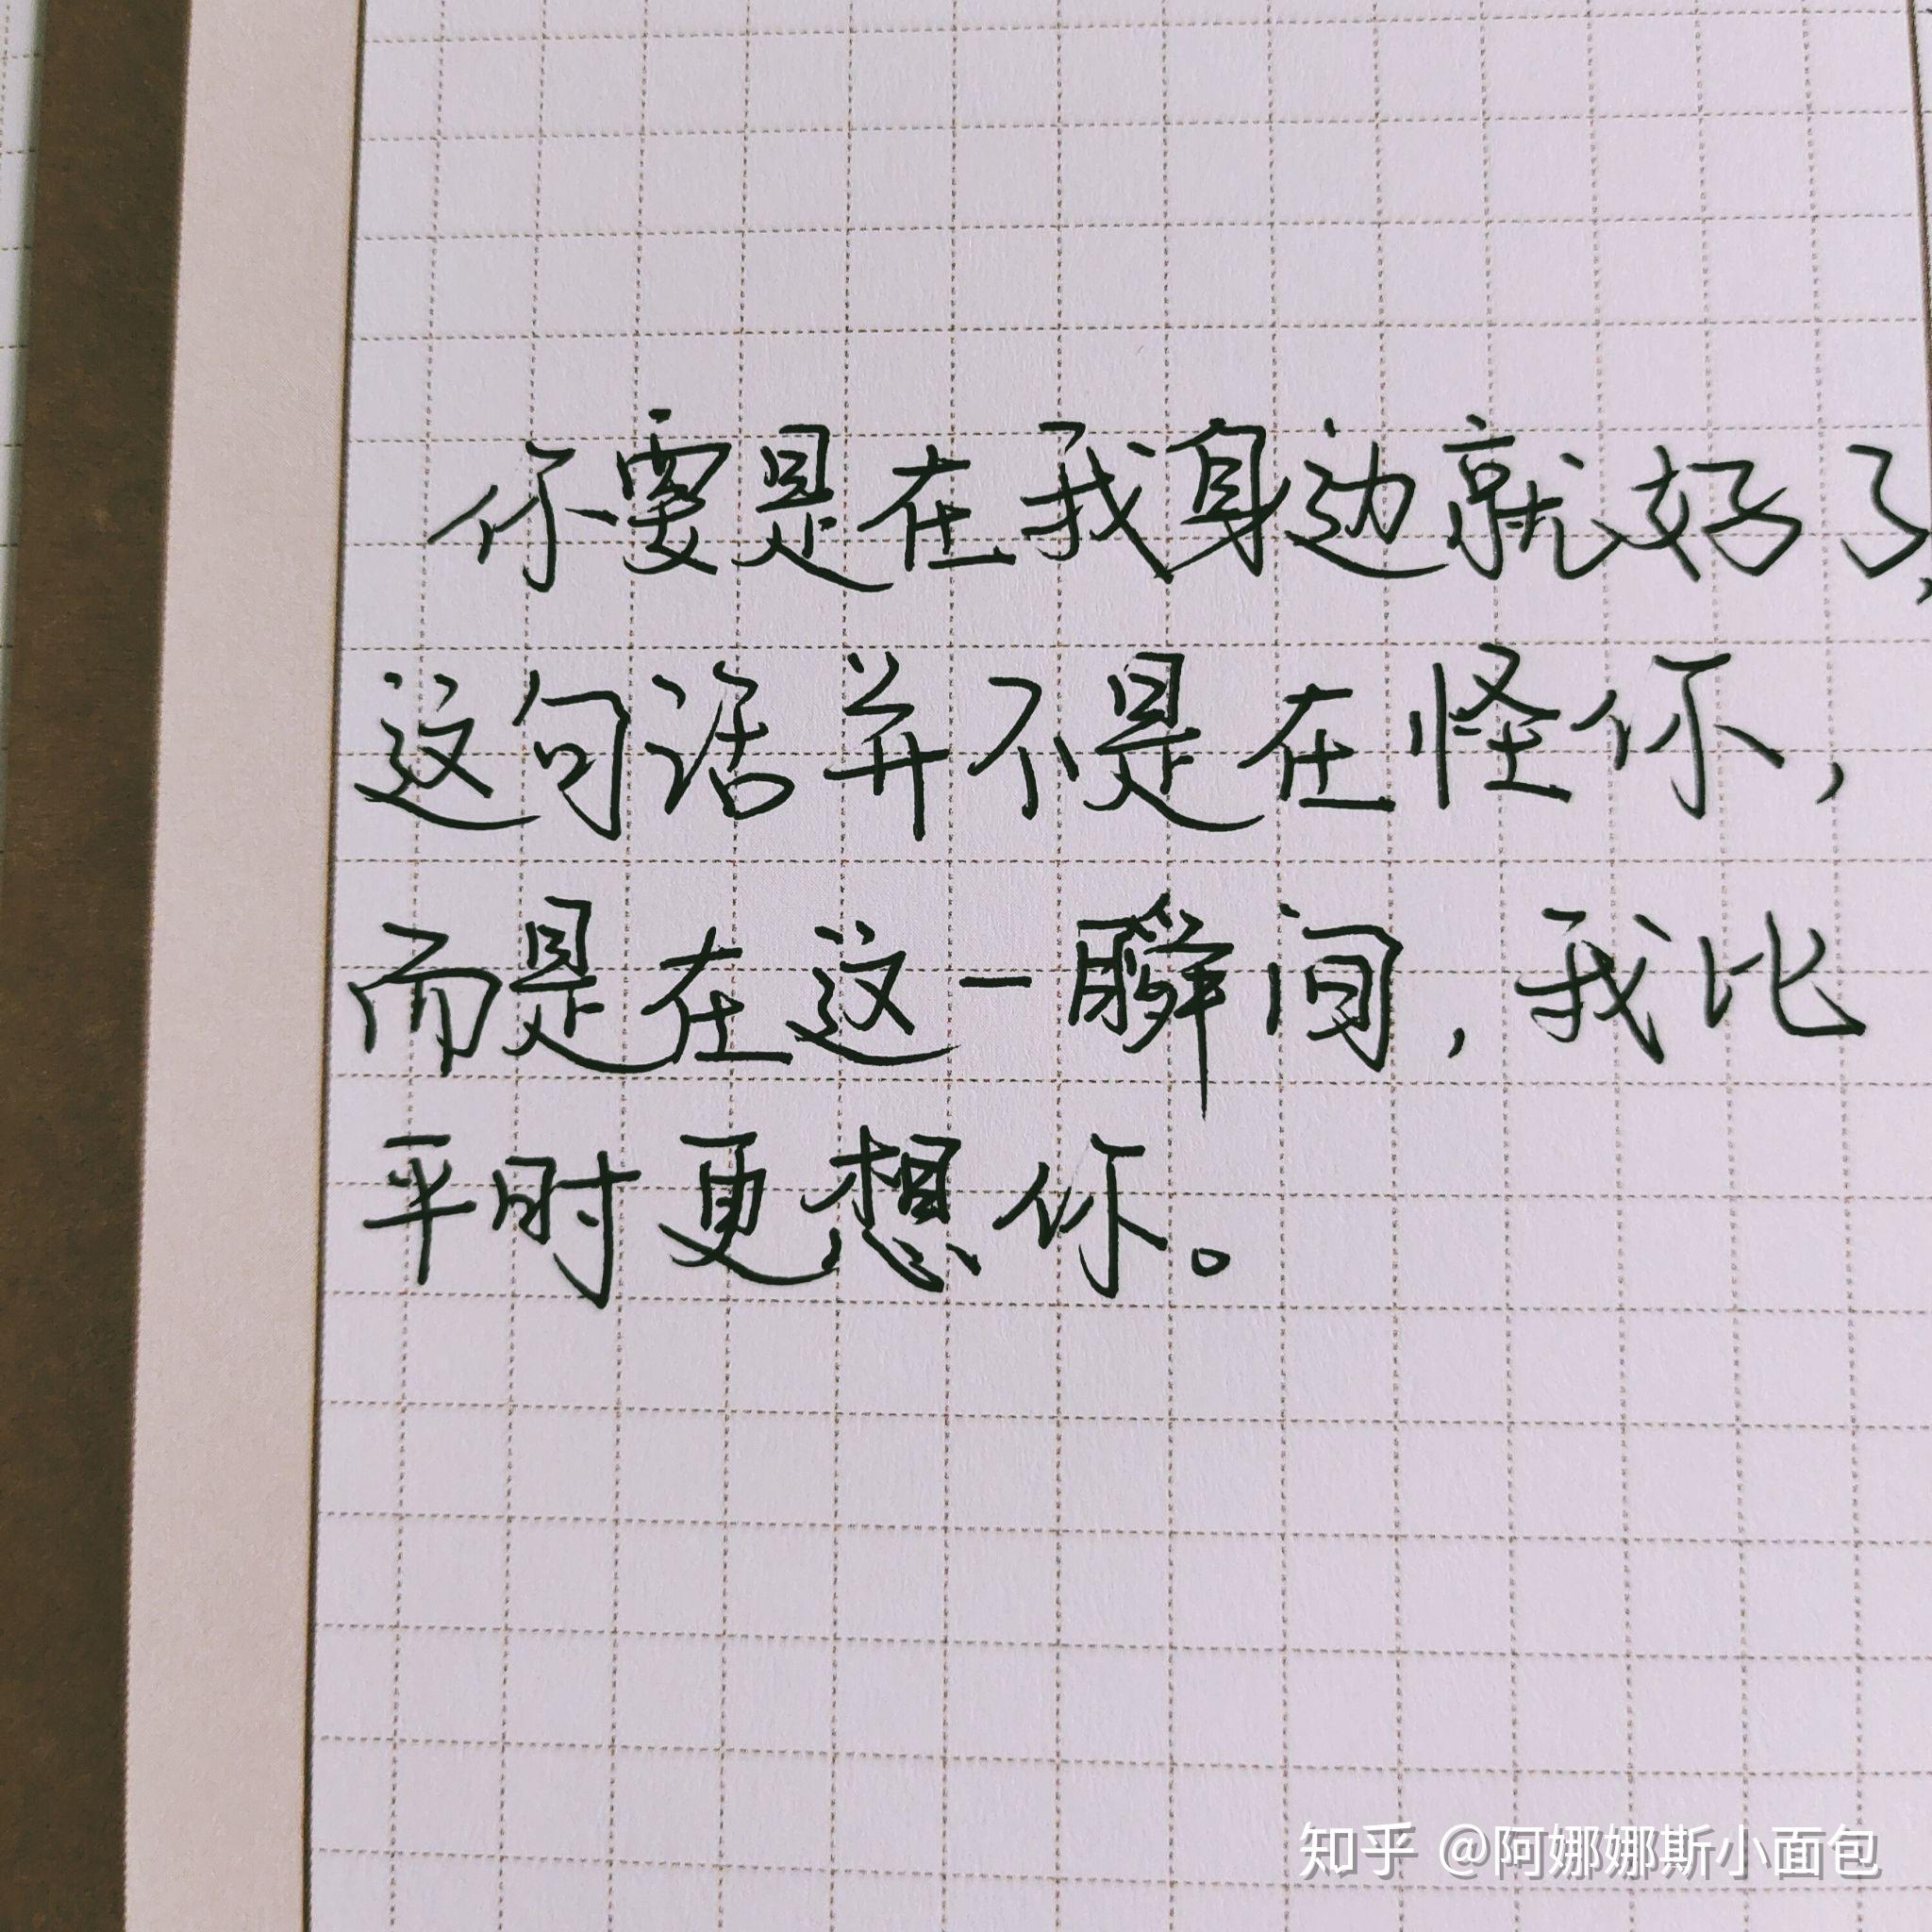 你要是在我身边就好了，
这句话并不是在怪你，
而是在这一瞬间，我比
平时更想你。
知乎 @阿娜娜斯小面包